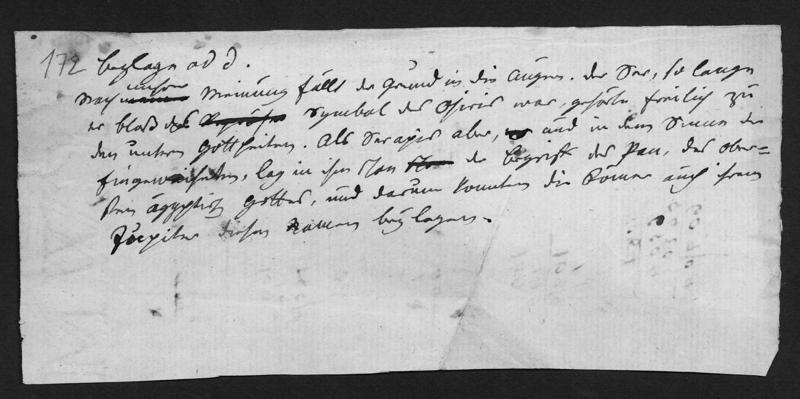 172 beylage ad d.
Nach unsrer Meinung fällt der Grund in die Augen. der Ser, so lange
er bloß das Symbol des Osiris war, gehörte freilich zu
den untern Gottheiten. Als Serapis aber, und in dem Sinne der
Eingeweihten, lag in ihm der Begriff des Pan, des ober=
sten ägyptisch Gottes, und darum konnten die Römer auch ihrem
Jupiter diesen Namen beylegen.